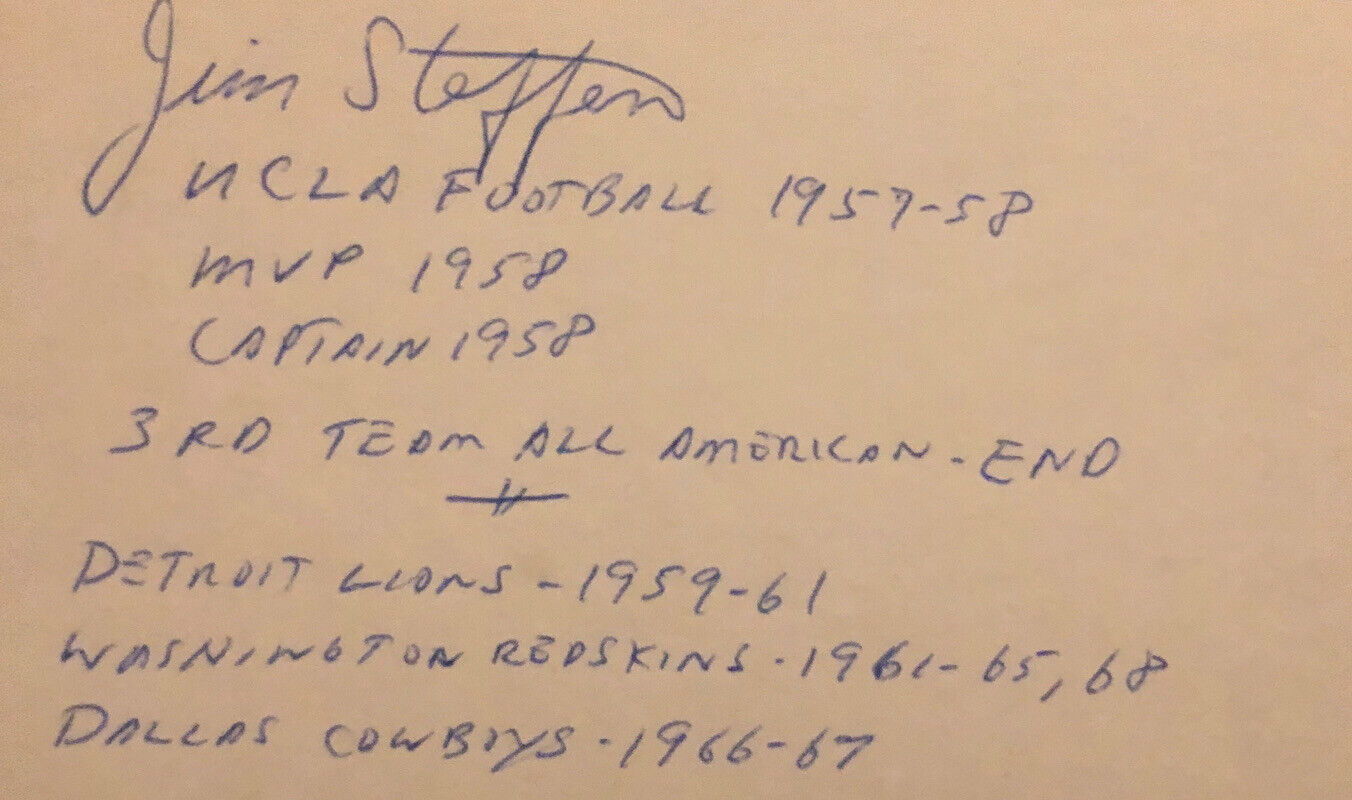 Jim Steffen
UCLA FOOTBALL 1957-58
MVP 1958
CAPTAIN 1958
3RD TEAM ALL AMERICAN - END
DETROIT LIONS - 1959-61
WASHINGTON REDSKINS - 1961-65, 68
DALLAS COWBOYS - 1966-67